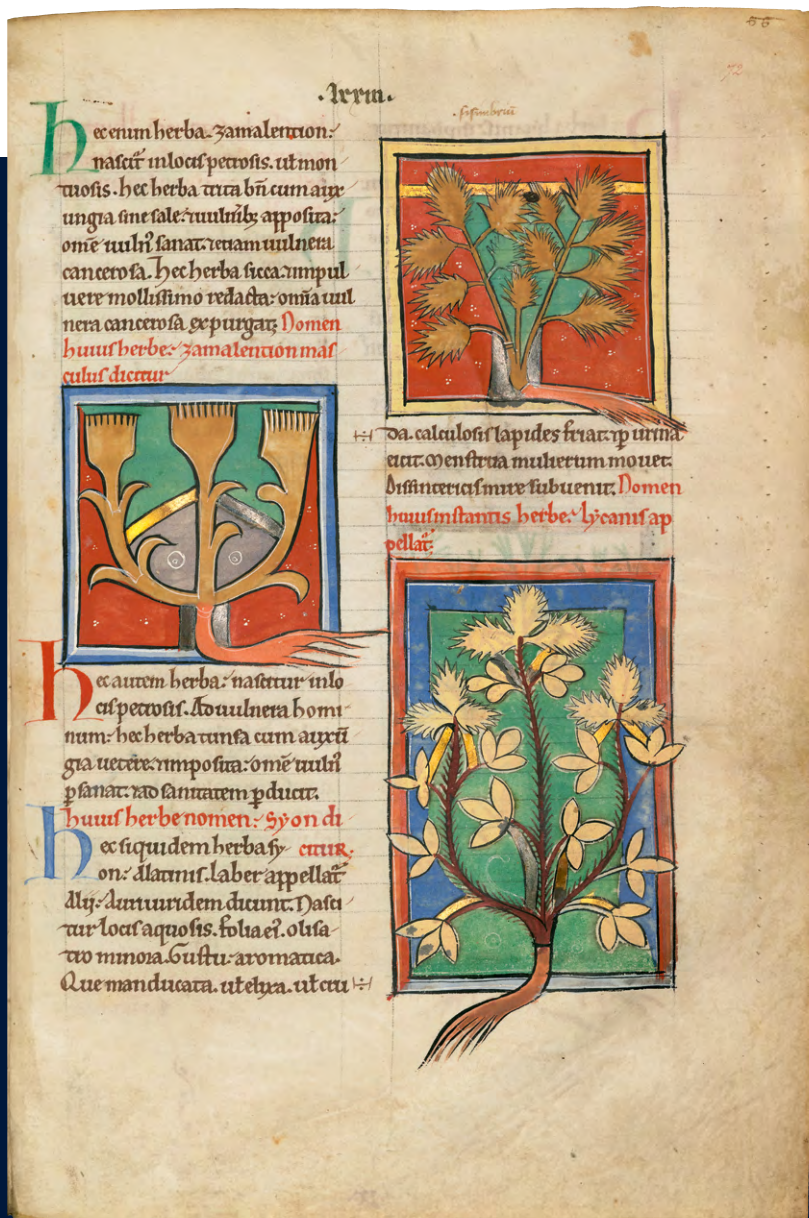 56
72
.lxxiii.
sisimbriu
hec enim herba. zamalention:
nascit' in locis petrosis. ut mon
tuosis. hec herba trita bn̄ cum aux
ungia sine sale: ⁊ uulnib; apposita:
om̄e uuln' sanat: etiam uulnera
cancerosa. hec herba sicca: ⁊ in pul
uere mollissimo redacta: om̄ia uul
nera cancerosa expurgat; Nomen
huius herbe: zamalention mas
culus dicitur
hec autem herba: nascitur in lo
cis petrosis. Ad uulnera homi
num: hec herba tunsa cum auxū
gia uetere: ⁊ imposita: om̄e uuln'
p̱sanat: ⁊ ad sanitatem p̱ducit.
huius herbe nomen: syon di
citur.
hec siquidem herba sy
on: a latinis. laber appellat'
Alij: Aururidem dicunt. Nasci
tur locis aquosis. folia ei'. olisa
tro minora. Gustu aromatica.
Que manducata. ut elixa. ut cru
da. calculosis lapides friat: ⁊ p̱ urina
eicit. Menstrua mulierum mouet.
Dissintericis mire subuenit. Nomen
huius instantis herbe: lycanis ap
pellat';